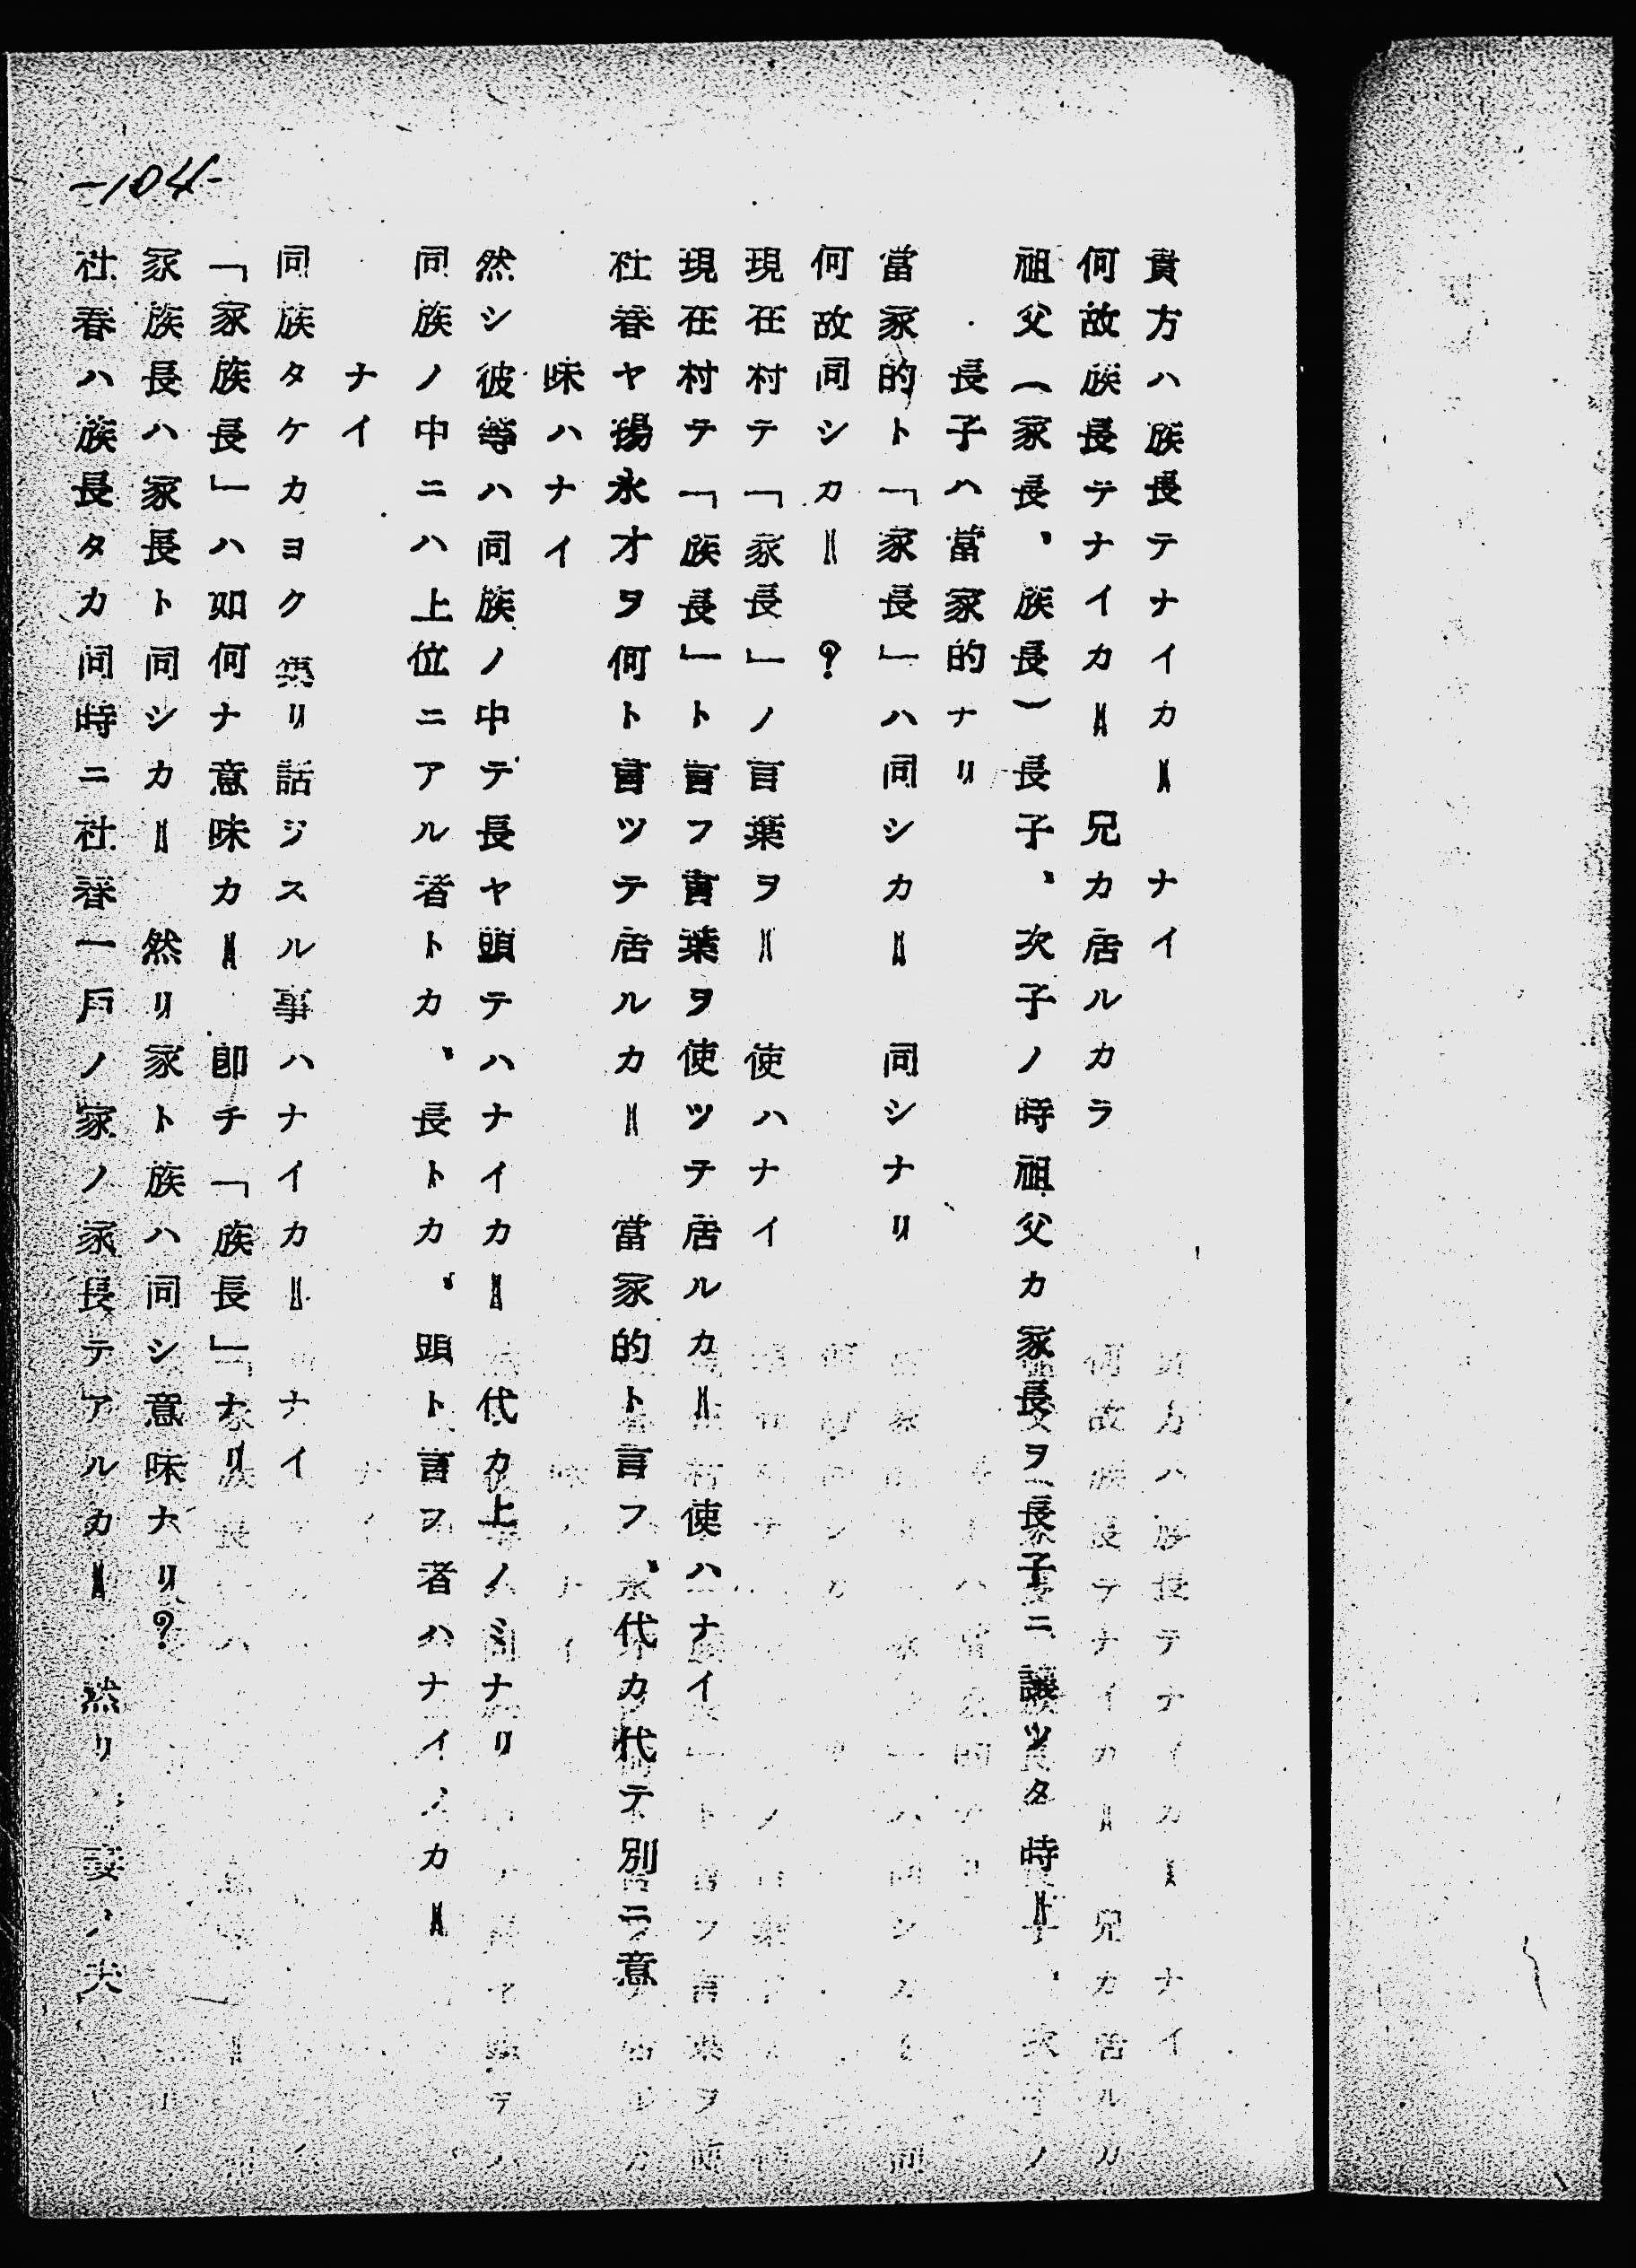 -104-
貴方ハ族長テナイカ＝　ナイ
何故族長テナイカ＝　兄カ居ルカラ
祖父（家長、族長）長子、次子ノ時祖父カ家長ヲ長子ニ讓ツタ時＝
長子ハ當家的ナリ
當家的ト「家長」ハ同シカ＝　同シナリ
何故同シカ＝　？
現在村テ「家長」ノ言葉ヲ＝　使ハナイ
現在村テ「族長」ト言フ言葉ヲ使ツテ居ルカ＝　使ハナイ
社春ヤ揚永才ヲ何ト言ツテ居ルカ＝　當家的ト言フ、代カ代テ別ニ意
味ハナイ
然シ彼等ハ同族ノ中デ長ヤ頭テハナイカ＝　代カ上ノミナリ
同族ノ中ニハ上位ニアル者トカ、長トカ、頭ト言フ者ハナイノカ＝
ナイ
同族タケカヨクリ話ジスル事ハナイカ＝　ナイ
「家族長」ハ如何ナ意味カ＝　卽チ「族長」ナリ
家族長ハ家長ト同シカ＝　然リ家ト族ハ同シ意味ナリ？
社春ハ族長タカ同時ニ社春一戶ノ家ノ家長テアルカ＝　然リ